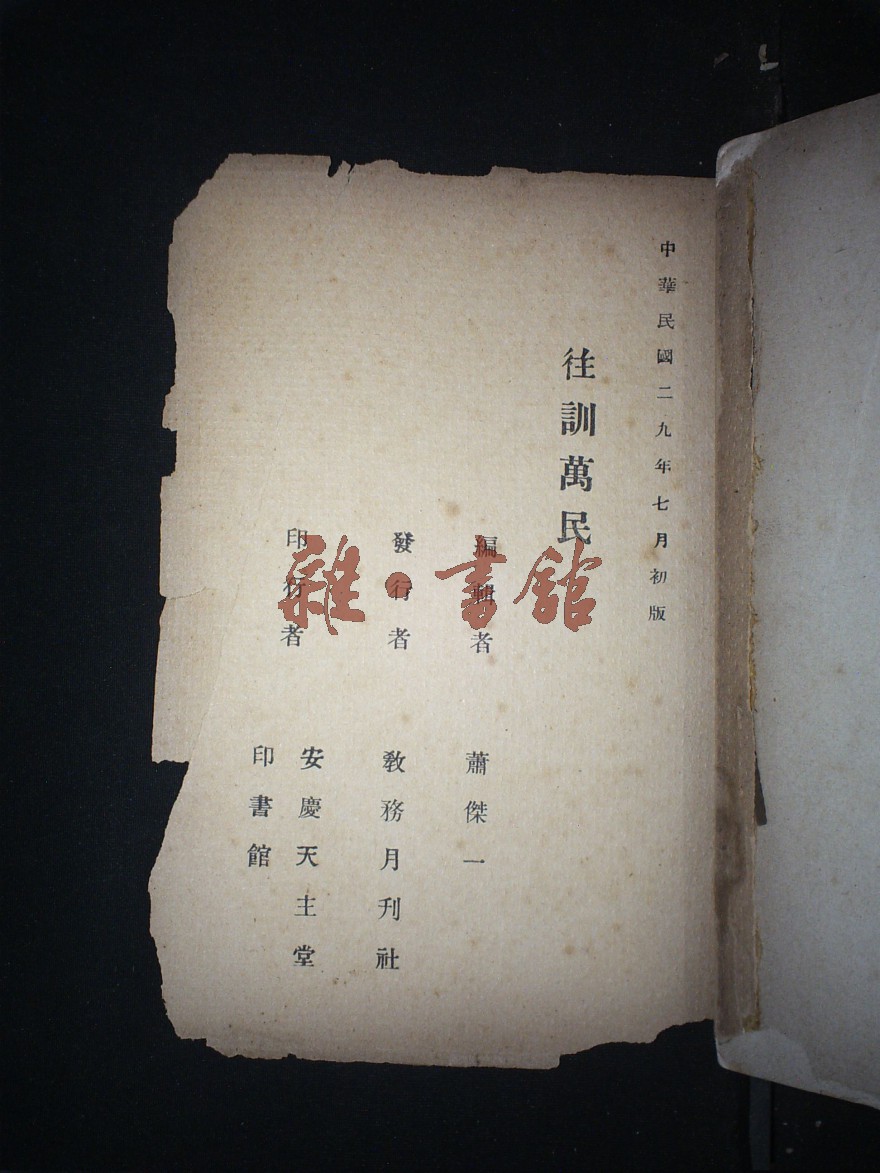 中華民國二九年七月初版
往訓萬民
編輯者 蕭傑一
發行者 敎務月刊社
印行者 安慶天主堂
印書館
雜·書館